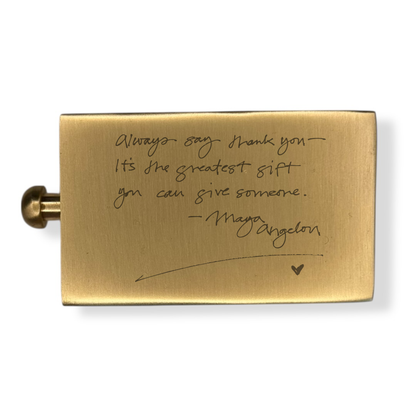 always say thank you—
It's the greatest gift
you can give someone.
— Maya
Angelou